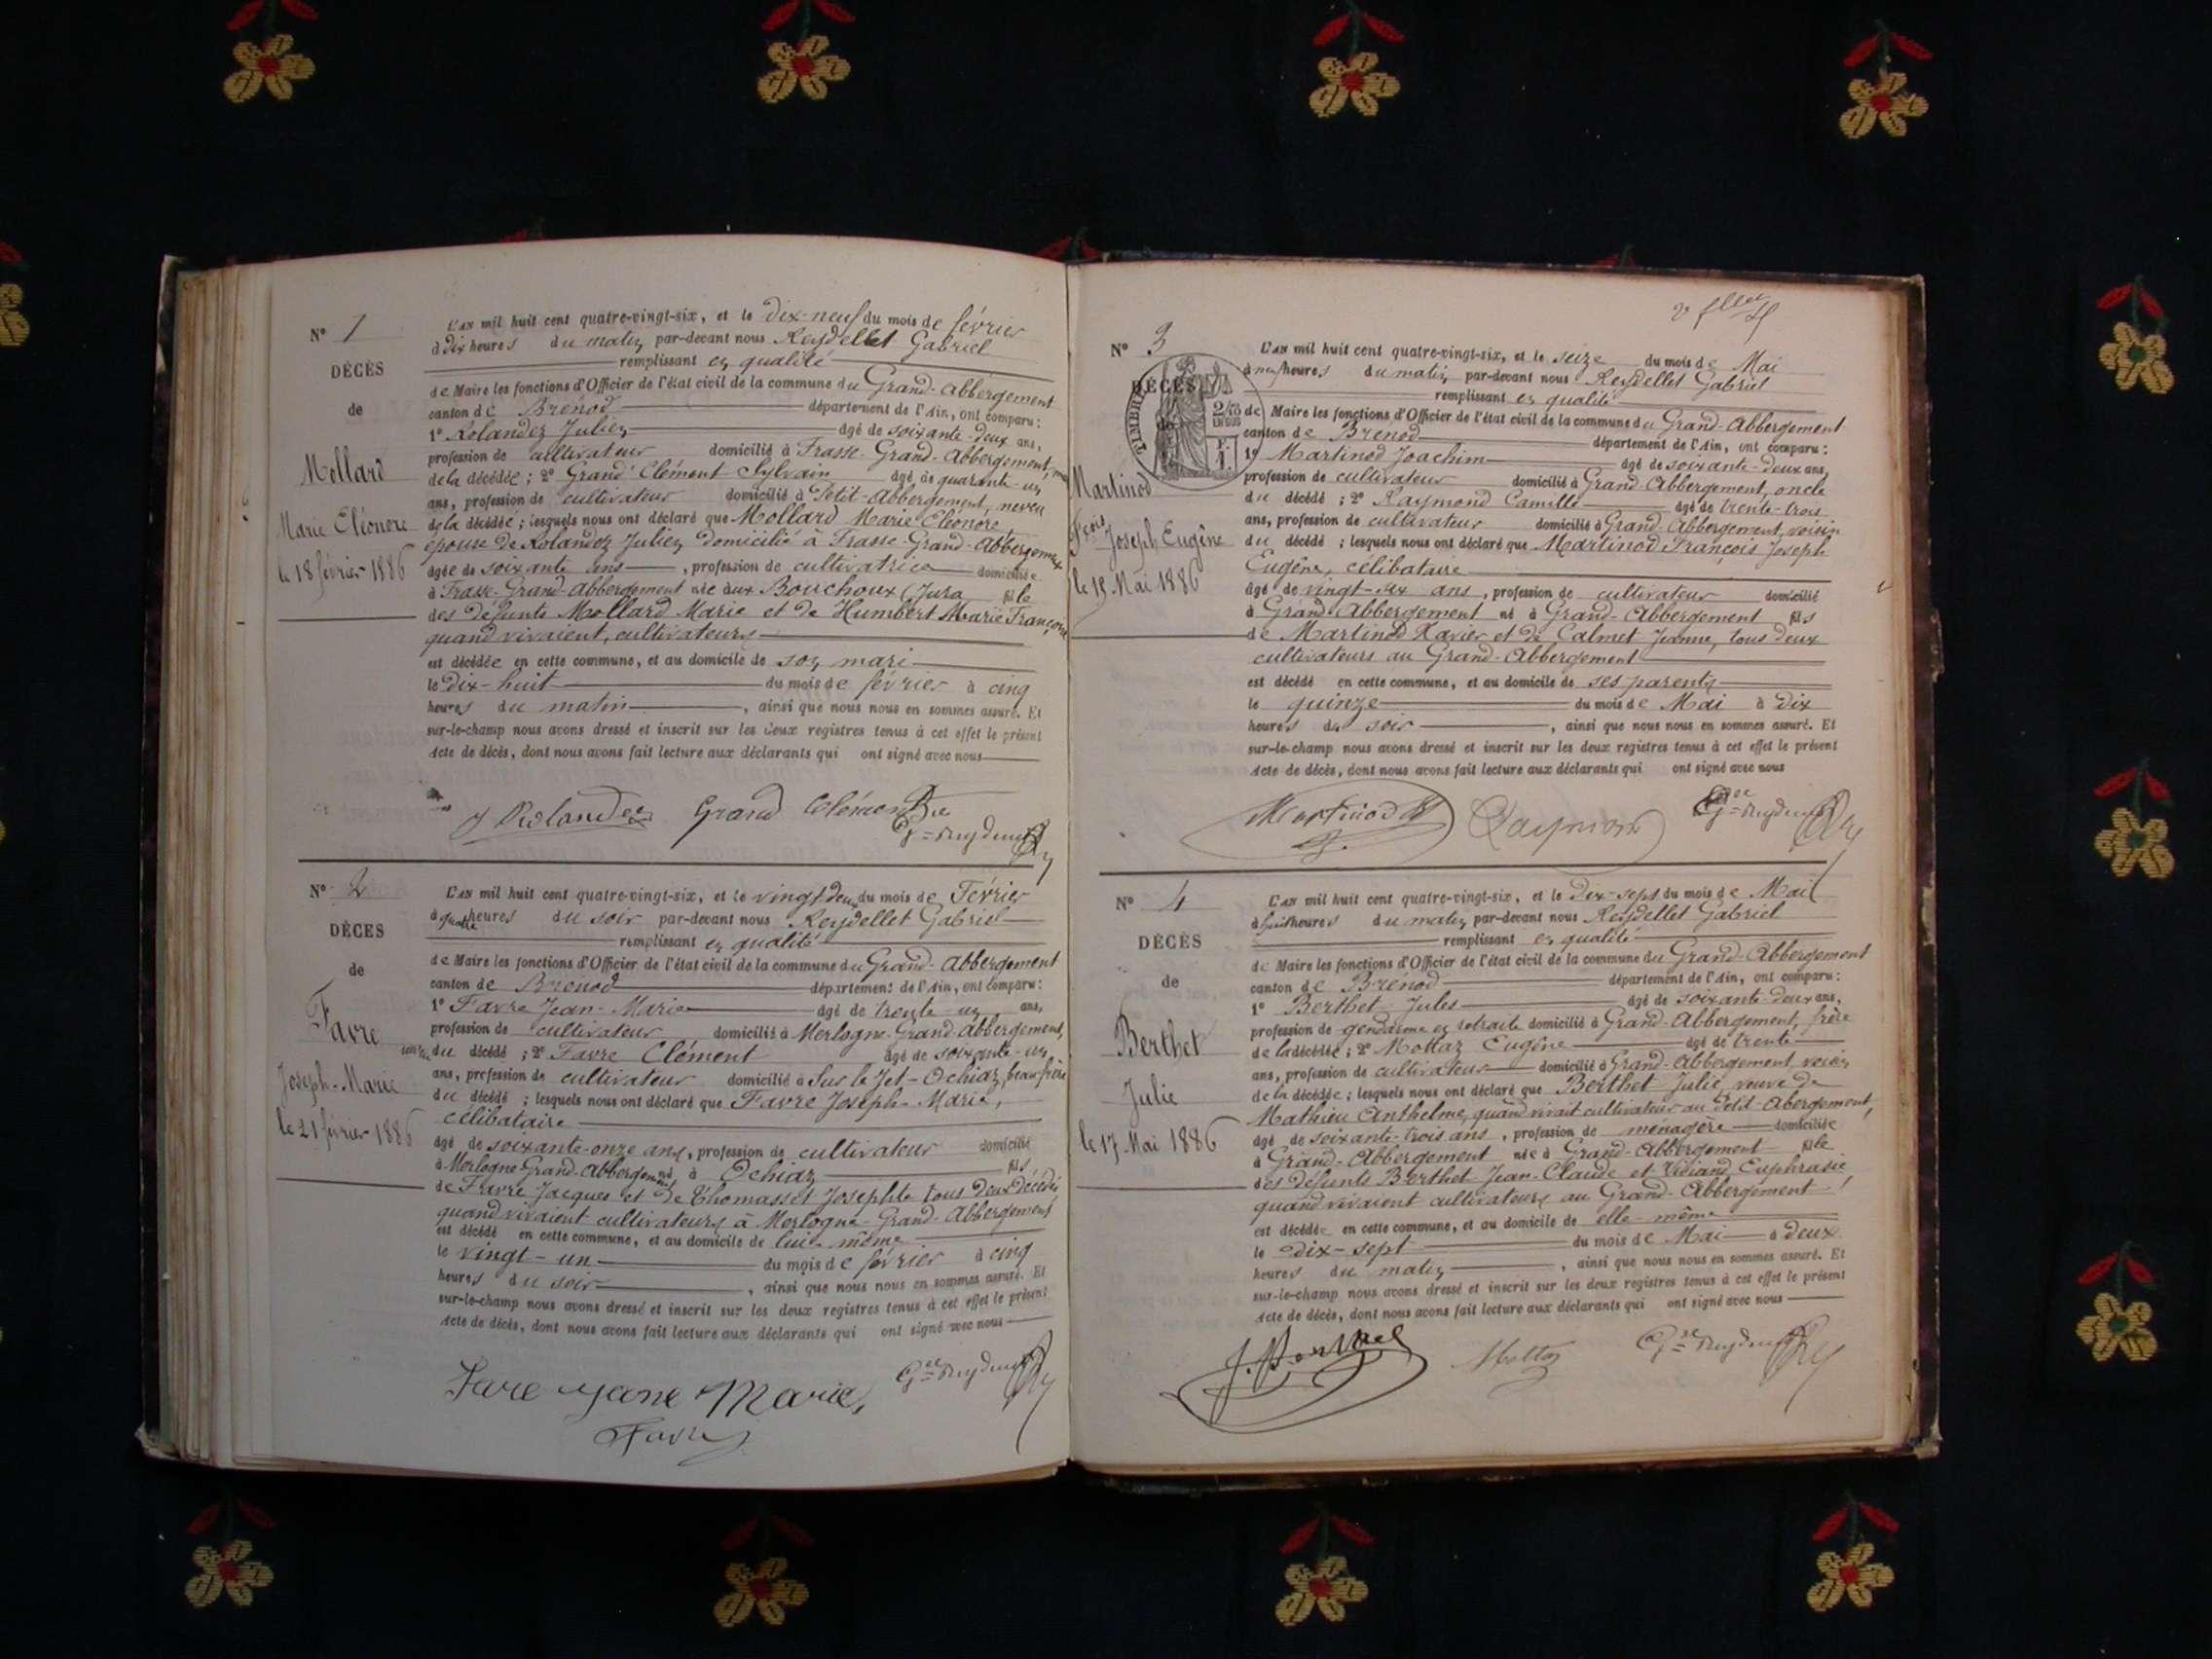 N° 1
DÉCÈS
de
Mollard
Marie Eléonore
le 18 février 1886
L'AN mil huit cent quatre-vingt-six, et le dix-neuf du mois de février
à dix heures du matin par-devant nous Reydellet Gabriel
remplissant en qualité
de Maire les fonctions d'Officier de l'état civil de la commune du Grand-Abbergement
canton de Brénod département de l'Ain, ont comparu :
1° Rolandez Julien âgé de soixante-deux ans,
profession de cultivateur domicilié à Frasse-Grand-Abbergement,
de la décédée ; 2° Grand Clément Sylvain âgé de quarante-un
ans, profession de cultivateur domicilié à Petit-Abbergement, neveu
de la décédée ; lesquels nous ont déclaré que Mollard Marie Eléonore,
épouse de Rolandez Julien domicilié à Frasse-Grand-Abbergement
âgée de soixante ans, profession de cultivatrice domiciliée
à Frasse-Grand-Abbergement née aux Bouchoux (Jura fille
des défunts Mollard Marie et de Humbert Marie Françoise
quand vivaient, cultivateurs
est décédée en cette commune, et au domicile de son mari
le dix-huit du mois de février à cinq
heures du matin, ainsi que nous nous en sommes assuré. Et
sur-le-champ nous avons dressé et inscrit sur les deux registres tenus à cet effet le présent
Acte de décès, dont nous avons fait lecture aux déclarants qui ont signé avec nous
J Rolandez Grand Clément
N° 2
DÉCÈS
de
Favre
Joseph-Marie
le 21 février 1886
L'AN mil huit cent quatre-vingt-six, et le vingt deux du mois de Février
à quatre heures du soir par-devant nous Reydellet Gabriel
remplissant en qualité
de Maire les fonctions d'Officier de l'état civil de la commune du Grand-Abbergement
canton de Brenod département de l'Ain, ont comparu :
1° Favre Jean-Marie âgé de trente-un ans,
profession de cultivateur domicilié à Merlogne-Grand-Abbergement,
du décédé ; 2° Favre Clément âgé de soixante-un
ans, profession de cultivateur domicilié à Sur le Jet-Ochiaz, beau-frère
du décédé ; lesquels nous ont déclaré que Favre Joseph-Marie,
célibataire
âgé de soixante-onze ans, profession de cultivateur domicilié
à Merlogne Grand-Abbergement né à Ochiaz fils
de Favre Jacques et de Thomasset Josephte tous deux décédés
quand vivaient cultivateurs à Merlogne-Grand-Abbergement
est décédé en cette commune, et au domicile de lui-même
le vingt-un du mois de février à cinq
heures du soir, ainsi que nous nous en sommes assuré. Et
sur-le-champ nous avons dressé et inscrit sur les deux registres tenus à cet effet le présent
Acte de décès, dont nous avons fait lecture aux déclarants qui ont signé avec nous
Favre Jeane Marie,
Favre
N° 3
DÉCÈS
de
TIMBRE
Martinod
Fçois Joseph Eugène
le 15 Mai 1886
L'AN mil huit cent quatre-vingt-six, et le seize du mois de Mai
à neuf heures du matin par-devant nous Reydellet Gabriel
remplissant en qualité
de Maire les fonctions d'Officier de l'état civil de la commune du Grand-Abbergement
canton de Brenod département de l'Ain, ont comparu :
1° Martinod Joachim âgé de soixante-deux ans,
profession de cultivateur domicilié à Grand-Abbergement, oncle
du décédé ; 2° Raymond Camille âgé de trente-trois
ans, profession de cultivateur domicilié à Grand-Abbergement, voisin
du décédé ; lesquels nous ont déclaré que Martinod François Joseph
Eugène, célibataire
âgé de vingt-six ans, profession de cultivateur domicilié
à Grand-Abbergement né à Grand-Abbergement fils
de Martinod Xavier et de Calmet Jeanne, tous deux
cultivateurs au Grand-Abbergement
est décédé en cette commune, et au domicile de ses parents
le quinze du mois de Mai à dix
heures du soir, ainsi que nous nous en sommes assuré. Et
sur-le-champ nous avons dressé et inscrit sur les deux registres tenus à cet effet le présent
Acte de décès, dont nous avons fait lecture aux déclarants qui ont signé avec nous
Martinod Raymond
N° 4
DÉCÈS
de
Berthet
Julie
le 17 Mai 1886
L'AN mil huit cent quatre-vingt-six, et le Dix-sept du mois de Mai
à huit heures du matin par-devant nous Reydellet Gabriel
remplissant en qualité
de Maire les fonctions d'Officier de l'état civil de la commune du Grand-Abbergement
canton de Brénod département de l'Ain, ont comparu :
1° Berthet Jules âgé de soixante-deux ans,
profession de gendarme en retraite domicilié à Grand-Abbergement, frère
de la décédée ; 2° Mottaz Eugène âgé de trente
ans, profession de cultivateur domicilié à Grand-Abbergement, voisin
de la décédée ; lesquels nous ont déclaré que Berthet Julie, veuve de
Mathieu Anthelme, quand vivait cultivateur au Petit-Abergement,
âgé de soixante-trois ans, profession de ménagère domiciliée
à Grand-Abbergement née à Grand-Abbergement fille
des défunts Berthet Jean-Claude et Vidiand Euphrasie,
quand vivaient cultivateurs au Grand-Abbergement
est décédée en cette commune, et au domicile de elle-même
le dix-sept du mois de Mai à deux
heures du matin, ainsi que nous nous en sommes assuré. Et
sur-le-champ nous avons dressé et inscrit sur les deux registres tenus à cet effet le présent
Acte de décès, dont nous avons fait lecture aux déclarants qui ont signé avec nous
J. Berthet Mottaz